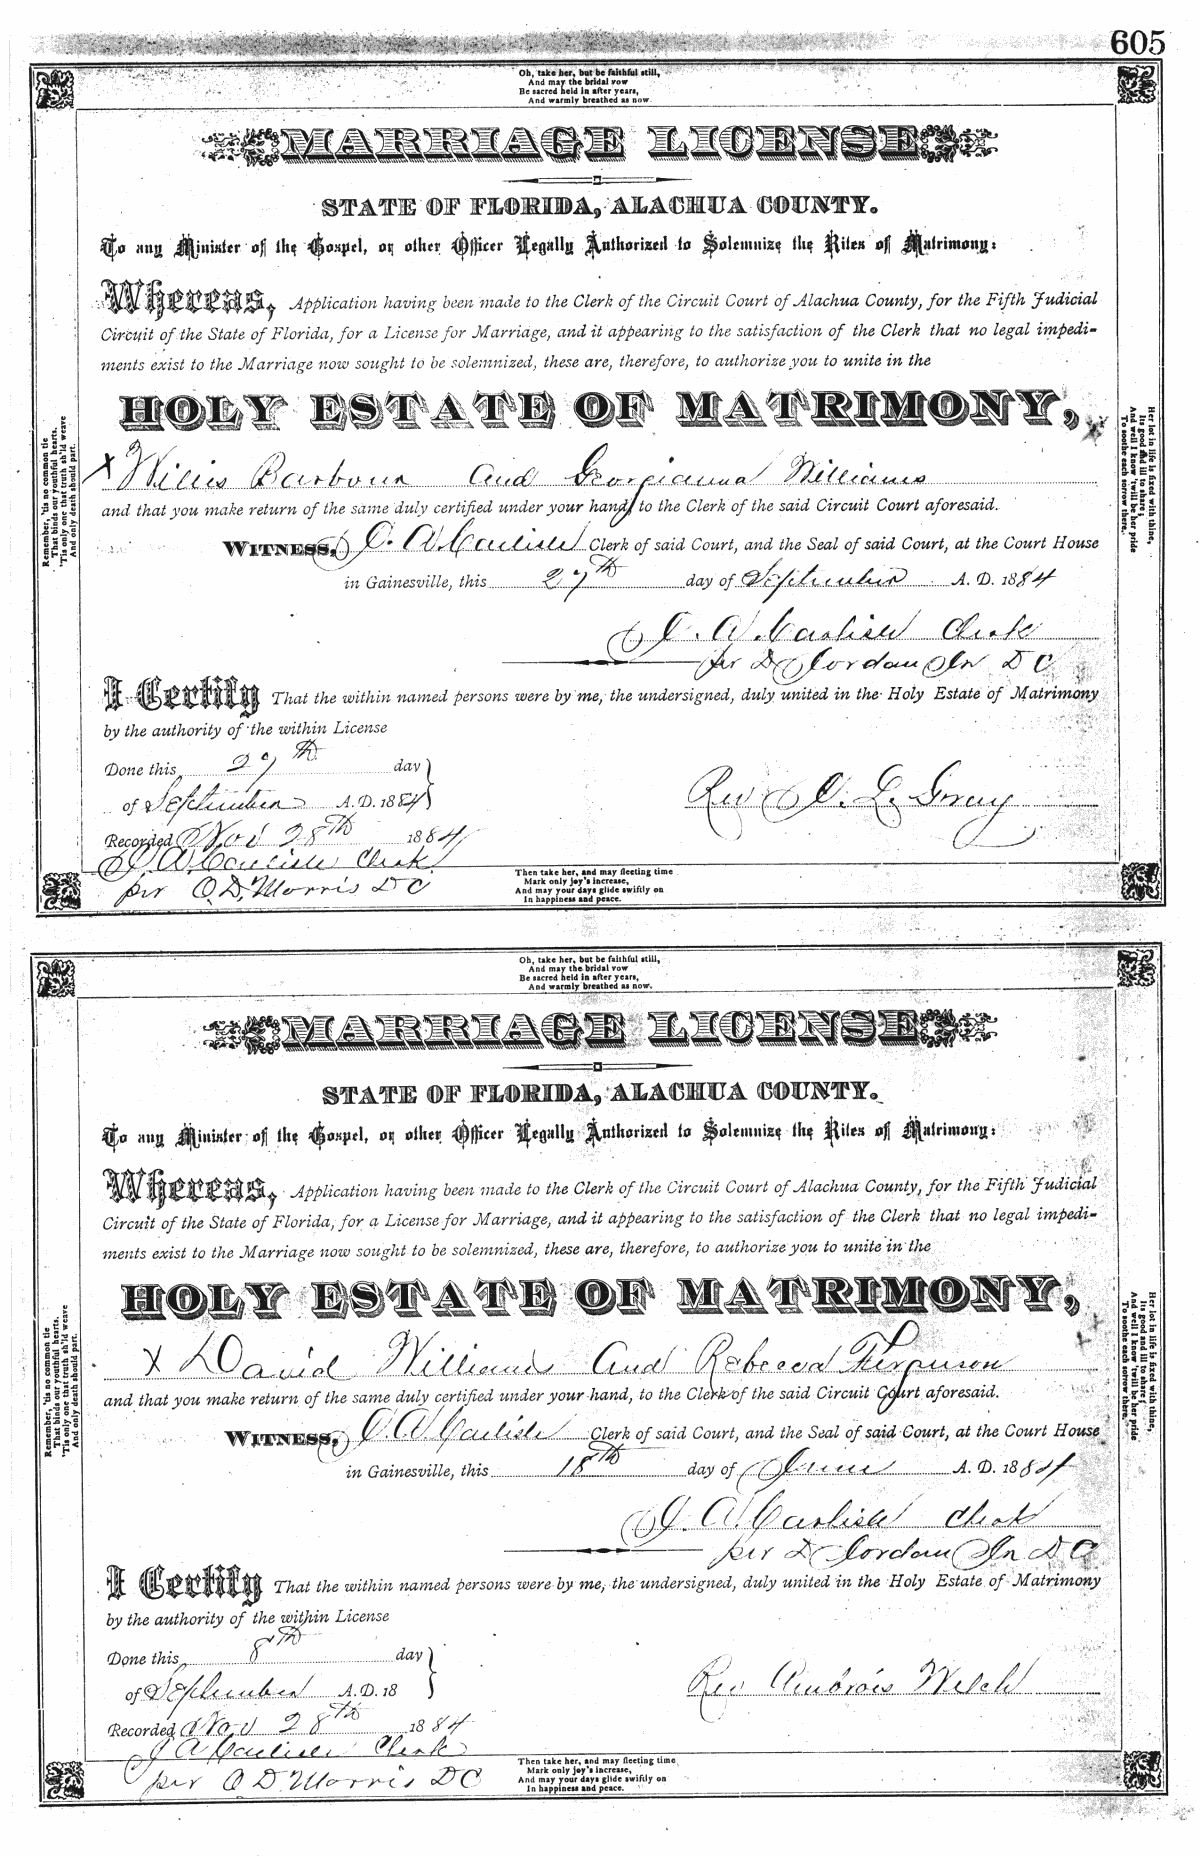 605
Oh, take her, but be faithful still,
And may the bridal vow
Be sacred held in after years,
And warmly breathed as now.
MARRIAGE LICENSE
STATE OF FLORIDA, ALACHUA COUNTY.
To any Minister of the Gospel, or other Officer Legally Authorized to Solemnize the Rites of Matrimony:
Whereas, Application having been made to the Clerk of the Circuit Court of Alachua County, for the Fifth Judicial
Circuit of the State of Florida, for a License for Marriage, and it appearing to the satisfaction of the Clerk that no legal impedi-
ments exist to the Marriage now sought to be solemnized, these are, therefore, to authorize you to unite in the
HOLY ESTATE OF MATRIMONY,
Remember, 'tis no common tie
That binds our youthful hearts,
'Tis only one that truth sh'ld weave
And only death should part.
Her lot in life is fixed with thine,
Its good and ill to share;
And well I know 'twill be her pride
To soothe each sorrow there.
X Willis Barbour and Georgianna Williams
and that you make return of the same duly certified under your hand, to the Clerk of the said Circuit Court aforesaid.
WITNESS, J. A. Carlisle Clerk of said Court, and the Seal of said Court, at the Court House
in Gainesville, this 27th day of September A. D. 1884
J. A. Carlisle Clerk
per D Jordan Jn D C
I Certify That the within named persons were by me, the undersigned, duly united in the Holy Estate of Matrimony
by the authority of the within License
Done this 27th day
of September A. D. 1884
Rev J. L. Gray
Recorded Nov 28th 1884
J A Carlisle Clerk
per O. D. Morris D C
Then take her, and may fleeting time
Mark only joy's increase,
And may your days glide swiftly on
In happiness and peace.
Oh, take her, but be faithful still,
And may the bridal vow
Be sacred held in after years,
And warmly breathed as now.
MARRIAGE LICENSE
STATE OF FLORIDA, ALACHUA COUNTY.
To any Minister of the Gospel, or other Officer Legally Authorized to Solemnize the Rites of Matrimony:
Whereas, Application having been made to the Clerk of the Circuit Court of Alachua County, for the Fifth Judicial
Circuit of the State of Florida, for a License for Marriage, and it appearing to the satisfaction of the Clerk that no legal impedi-
ments exist to the Marriage now sought to be solemnized, these are, therefore, to authorize you to unite in the
HOLY ESTATE OF MATRIMONY,
Remember, 'tis no common tie
That binds our youthful hearts.
'Tis only one that truth sh'ld weave
And only death should part.
Her lot in life is fixed with thine,
Its good and ill to share;
And well I know 'twill be her pride
To soothe each sorrow there.
X David Williams and Rebecca Ferguson
and that you make return of the same duly certified under your hand, to the Clerk of the said Circuit Court aforesaid.
WITNESS, J A Carlisle Clerk of said Court, and the Seal of said Court, at the Court House
in Gainesville, this 18th day of June A. D. 1884
J. A. Carlisle Clerk
per D Jordan Jn D C
I Certify That the within named persons were by me, the undersigned, duly united in the Holy Estate of Matrimony
by the authority of the within License
Done this 8th day
of September A. D. 18
Rev Ambrois Welch
Recorded Nov 28th 1884
J A Carlisle Clerk
per O D Morris D C
Then take her, and may fleeting time
Mark only joy's increase,
And may your days glide swiftly on
In happiness and peace.